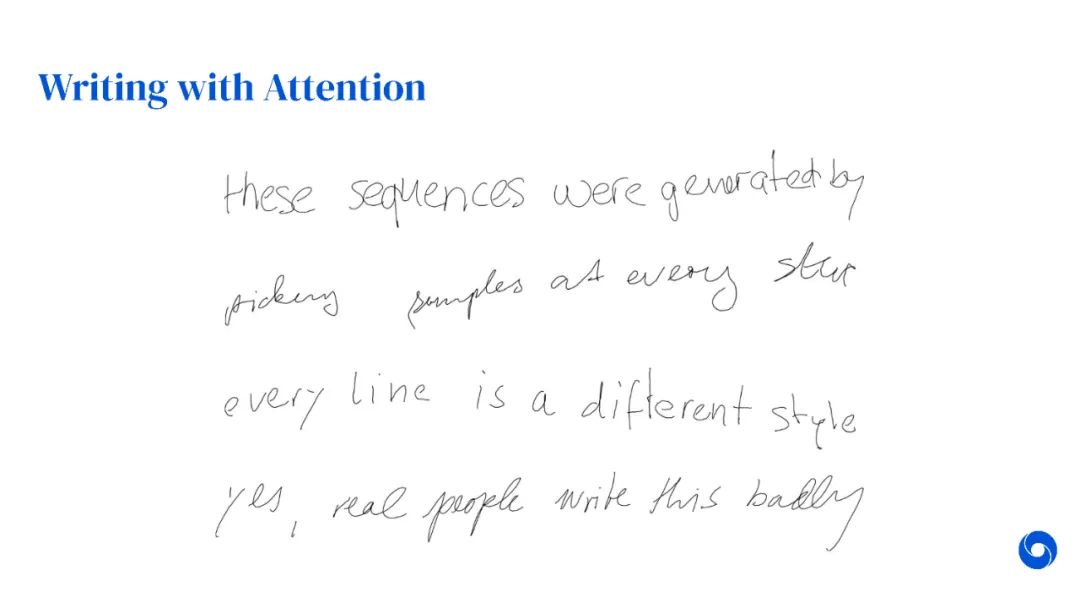 Writing with Attention
these sequences were generated by
picking samples at every
every line is a different style
yes, real people write this badly